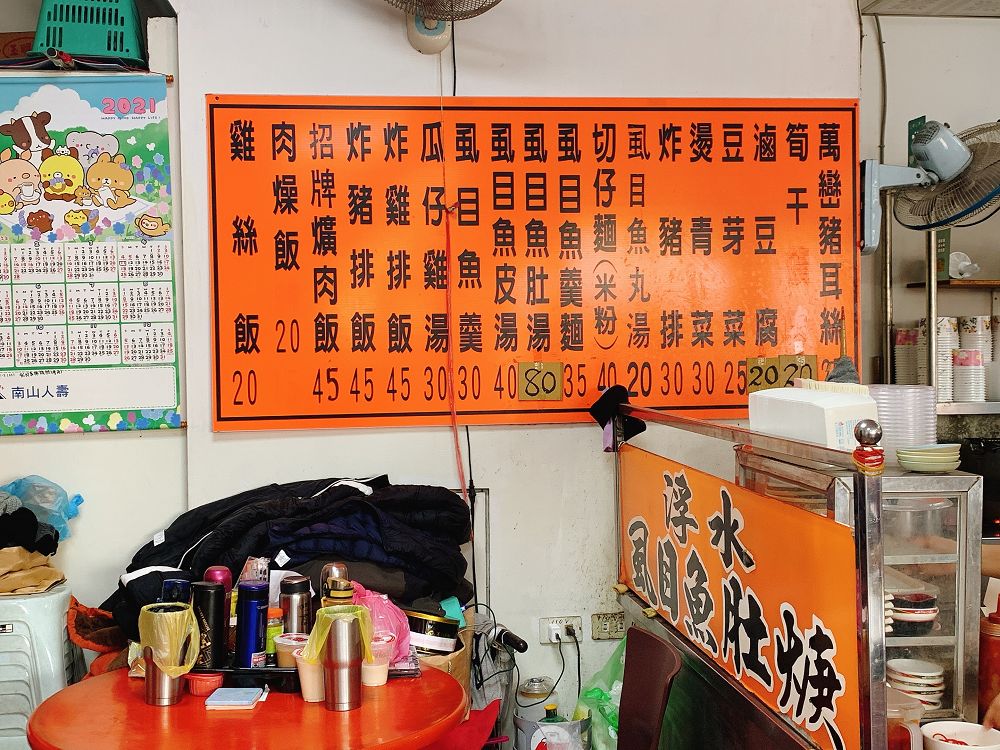 2021
南山人壽
雞絲飯 20
肉燥飯 20
招牌爌肉飯 45
炸豬排飯 45
炸雞排飯 45
瓜仔雞湯 30
虱目魚羹 30
虱目魚皮湯 40
虱目魚肚湯 80
虱目魚羹麵 35
切仔麵(米粉) 40
虱目魚丸湯 20
炸豬排 30
燙青菜 30
豆芽菜 25
滷豆腐 20
筍干 20
萬巒豬耳絲
浮水
虱目魚肚焿